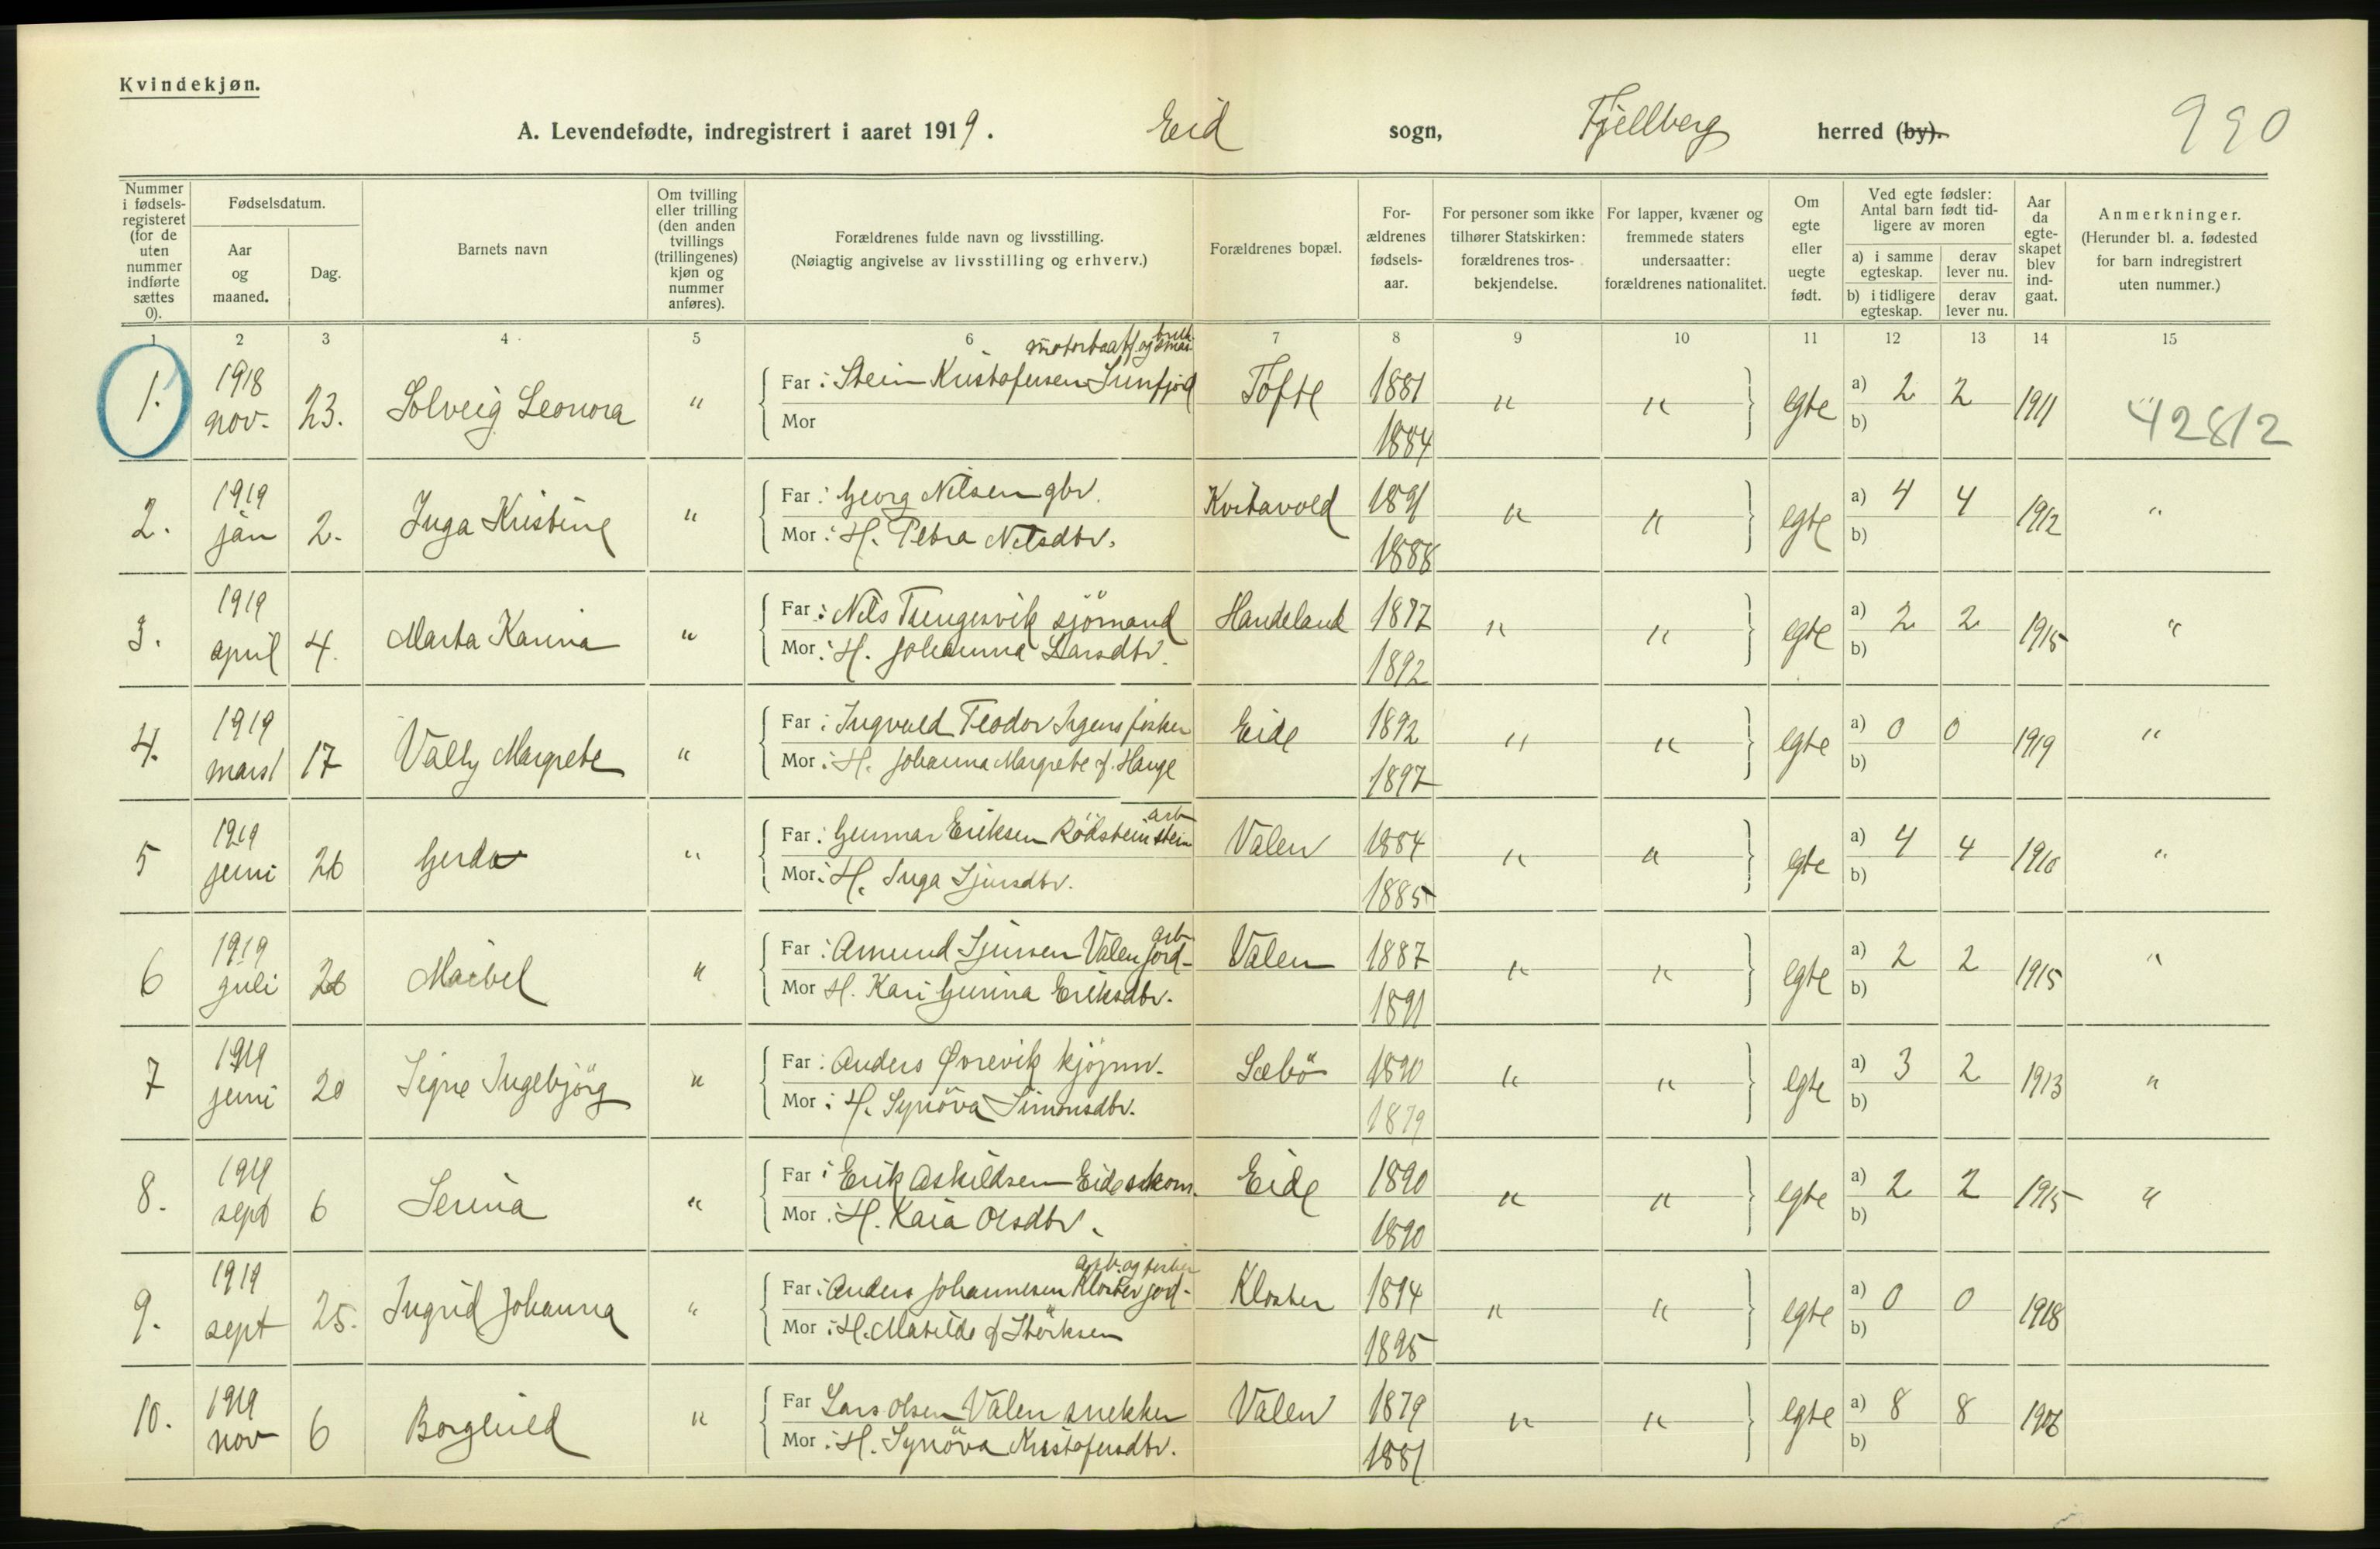 Kvindekjøn.
A. Levendefødte, indregistrert i aaret 1919. Eid sogn, Fjellberg herred (by).
990
Nummer i fødsels-registeret (for de uten nummer indførte sættes 0).
Fødselsdatum.
Aar og maaned.
Dag.
Barnets navn
Om tvilling eller trilling (den anden tvillings (trillingenes) kjøn og nummer anføres).
Forældrenes fulde navn og livsstilling.
(Nøiagtig angivelse av livsstilling og erhverv.)
Forældrenes bopæl.
For-ældrenes fødsels-aar.
For personer som ikke tilhører Statskirken: forældrenes tros-bekjendelse.
For lapper, kvæner og fremmede staters undersaatter: forældrenes nationalitet.
Om egte eller uegte født.
Ved egte fødsler: Antal barn født tid-ligere av moren
a) i samme egteskap.
derav lever nu.
b) i tidligere egteskap.
derav lever nu.
Aar da egte-skapet blev ind-gaat.
Anmerkninger.
(Herunder bl. a. fødested for barn indregistrert uten nummer.)
1 2 3 4 5 6 7 8 9 10 11 12 13 14 15
motorbaatf. og
1. 1918 nov. 23. Solveig Leonora " Far: Stein Kristofersen Sunfjord Tofte 1881 " " egte a) 2 2 1911 42812
Mor 1884 b)
2. 1919 jan 2. Inga Kristine " Far: Georg Nilsen gbr. Kvitavold 1891 " " egte a) 4 4 1912 "
Mor: H. Petra Nilsdtr. 1888 b)
3. 1919 april 4. Marta Karina " Far: Nils Tungesvik sjömand Handeland 1887 " " egte a) 2 2 1915 "
Mor: H. Johanna Larsdtr. 1892 b)
4. 1919 mars 17 Vally Margrete " Far: Ingvald Teodor Irgens fisker Eide 1892 " " egte a) 0 0 1919 "
Mor: H. Johanna Margrete f. Hauge 1897 b)
arb
5 1919 juni 26 Gerda " Far: Gunnar Eriksen Rödstein stein Valen 1884 " " egte a) 4 4 1910 "
Mor: H. Inga Sjursdtr. 1885 b)
arb
6 1919 juli 26 Maibel " Far: Amund Sjursen Valen jord- Valen 1887 " " egte a) 2 2 1915 "
Mor H. Kari Gurina Eriksdtr. 1891 b)
7 1919 juni 20 Signe Ingebjörg " Far: Anders Øvrevik kjöpm. Sæbö 1890 " " egte a) 3 2 1913 "
Mor: H. Synöva Simonsdtr. 1879 b)
8. 1919 sept 6 Serina " Far: Erik Askildsen Eide skom. Eide 1890 " " egte a) 2 2 1915 "
Mor: H. Kaia Olsdtr. 1890 b)
arb. og fisker
9. 1919 sept 25. Ingrid Johanna " Far: Anders Johannesen Kloster jord- Kloster 1894 " " egte a) 0 0 1918
Mor: H. Matilde f. Störksen 1895 b)
10. 1919 nov 6 Borghild " Far Lars Olsen Valen snekker Valen 1879 " " egte a) 8 8 1906
Mor: H. Synöva Kristofersdtr. 1881 b)